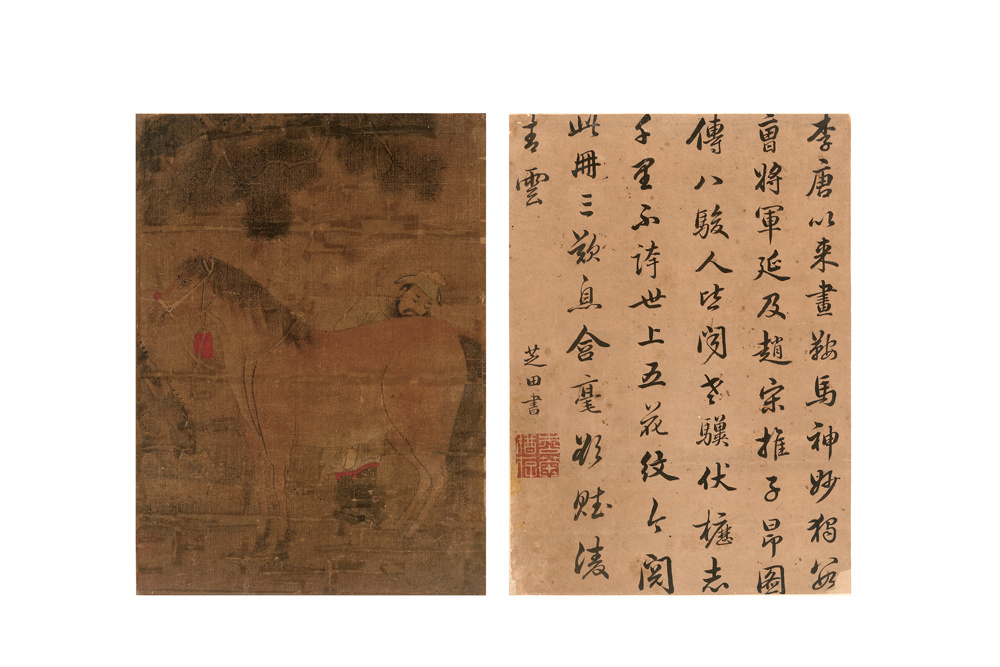 李唐以來畫鞍馬神妙獨數
曹將軍延及趙宋推子昂圖
傳八駿人皆聞老驥伏櫪志
千里不誇世上五花紋今閱
此冊三歎息含毫欲賦淩
青雲
芝田書